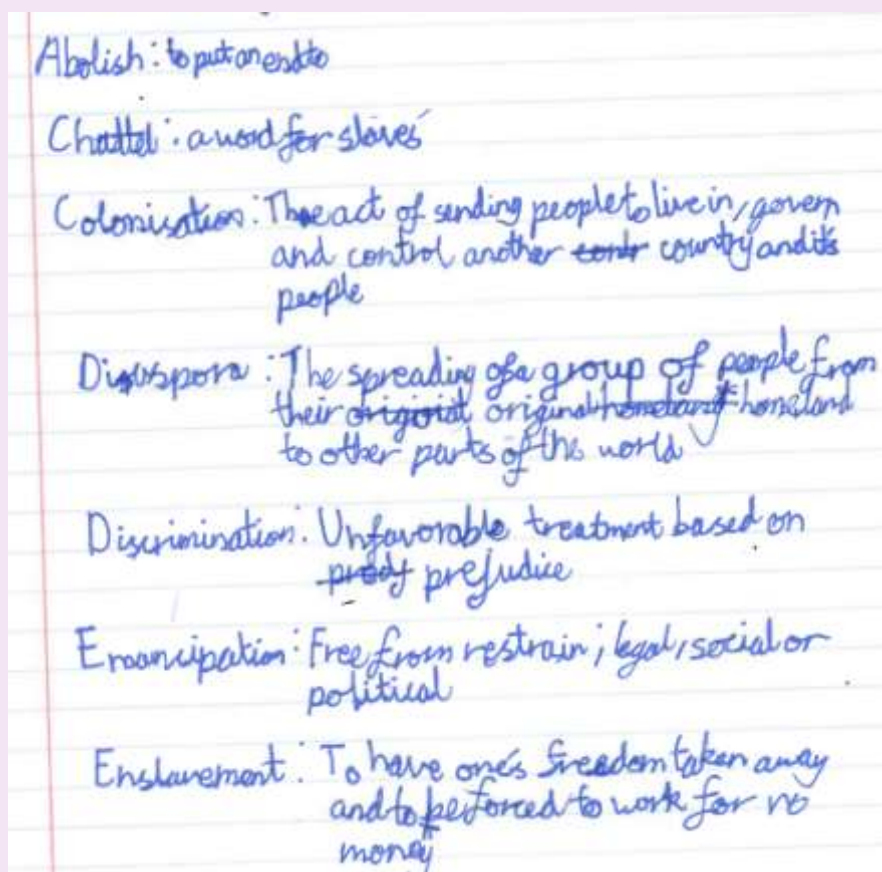 Abolish: to put an end to
Chattel: a word for slaves
Colonisation: The act of sending people to live in, govern
and control another contr country and it's
people
Diaspora: The spreading of a group of people from
their original homeland homeland
to other parts of the world
Discrimination: Unfavorable treatment based on
prejudice
Emancipation: Free from restrain; legal, social or
political
Enslavement: To have one's freedom taken away
and to be forced to work for no
money